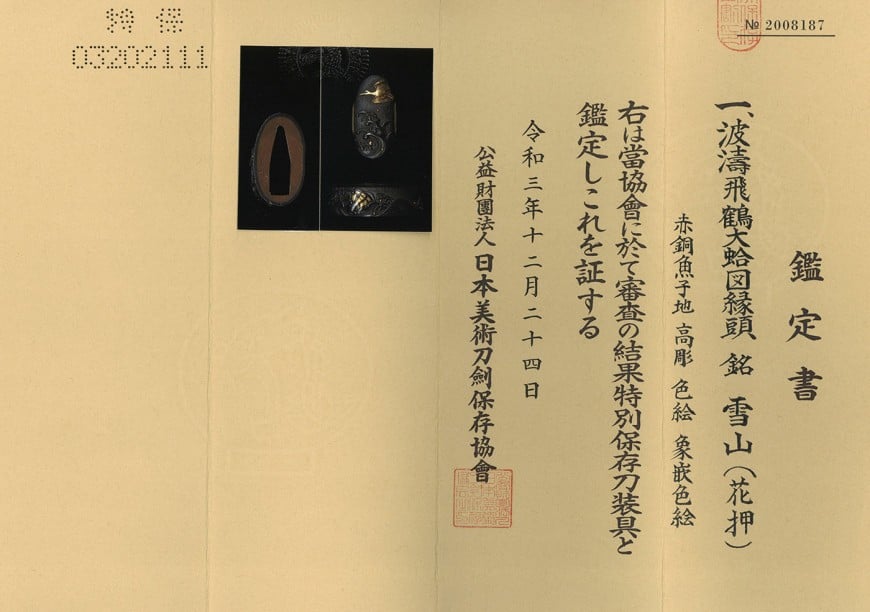 № 2008187
鑑定書
一、波濤飛鶴大蛤図縁頭 銘 雪山(花押)
赤銅魚子地 高彫 色絵 象嵌色絵
右は當協會に於て審査の結果特別保存刀装具と
鑑定しこれを証する
令和三年十二月二十四日
公益財團法人 日本美術刀劍保存協會
特 保
03202111